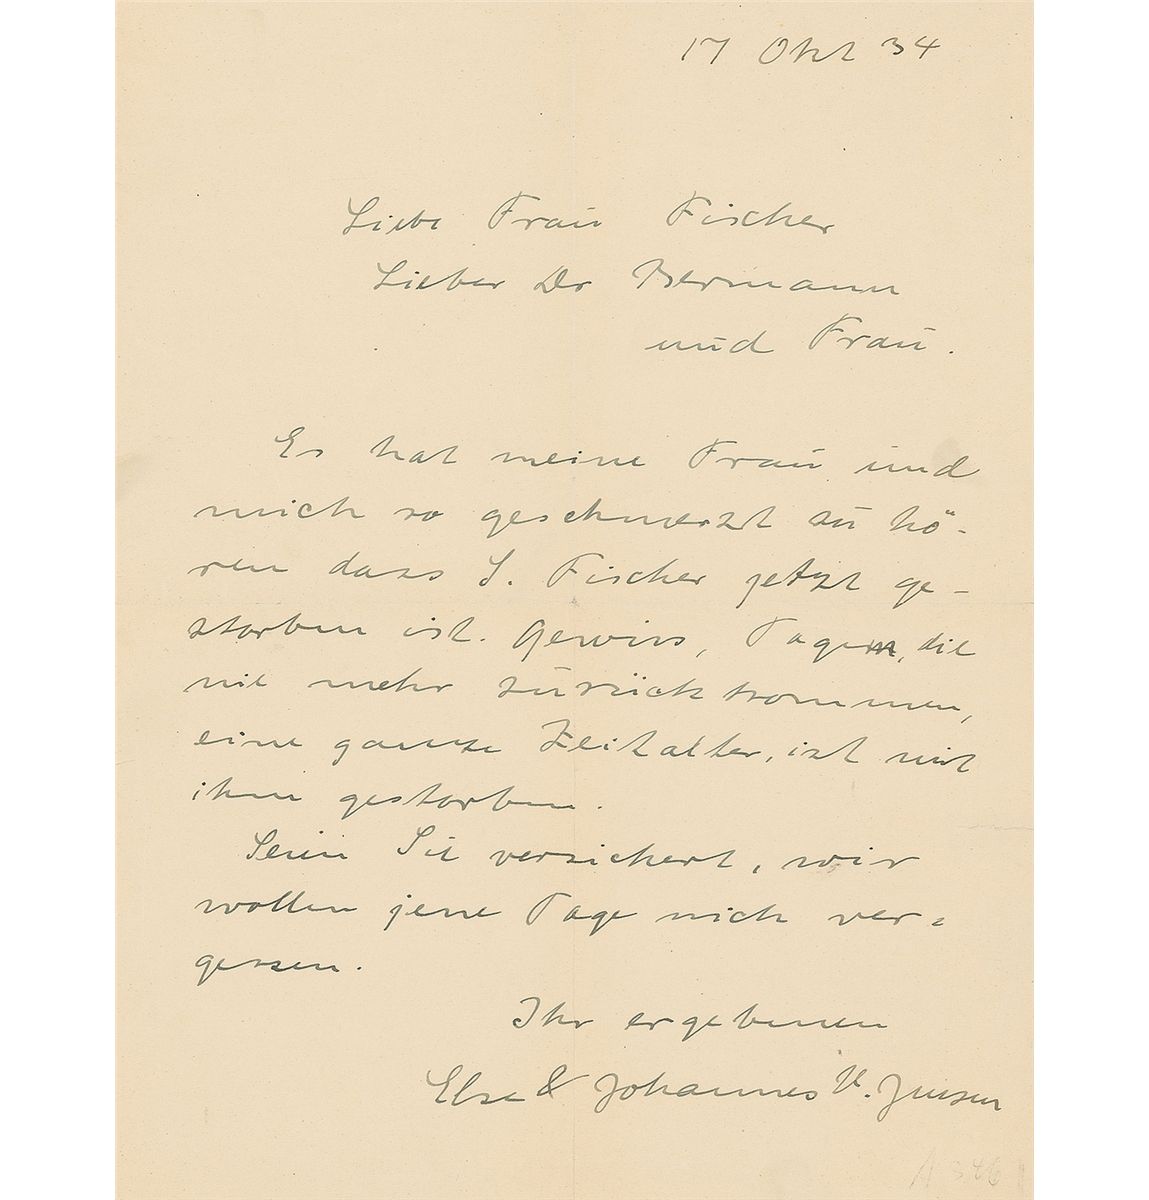 17 Okt 34
Liebe Frau Fischer
Lieber Dr Bermann
und Frau.
Es hat meine Frau und
mich so geschmerzt zu hö-
ren dass S. Fischer jetzt ge-
storben ist. Gewiss, Tagen, die
nie mehr zurück kommen,
eine ganze Zeitalter, ist mit
ihm gestorben.
Seien Sie versichert, wir
wollen jene Tage nich ver-
gessen.
Ihr ergebenen
Else & Johannes V. Jensen
A 346